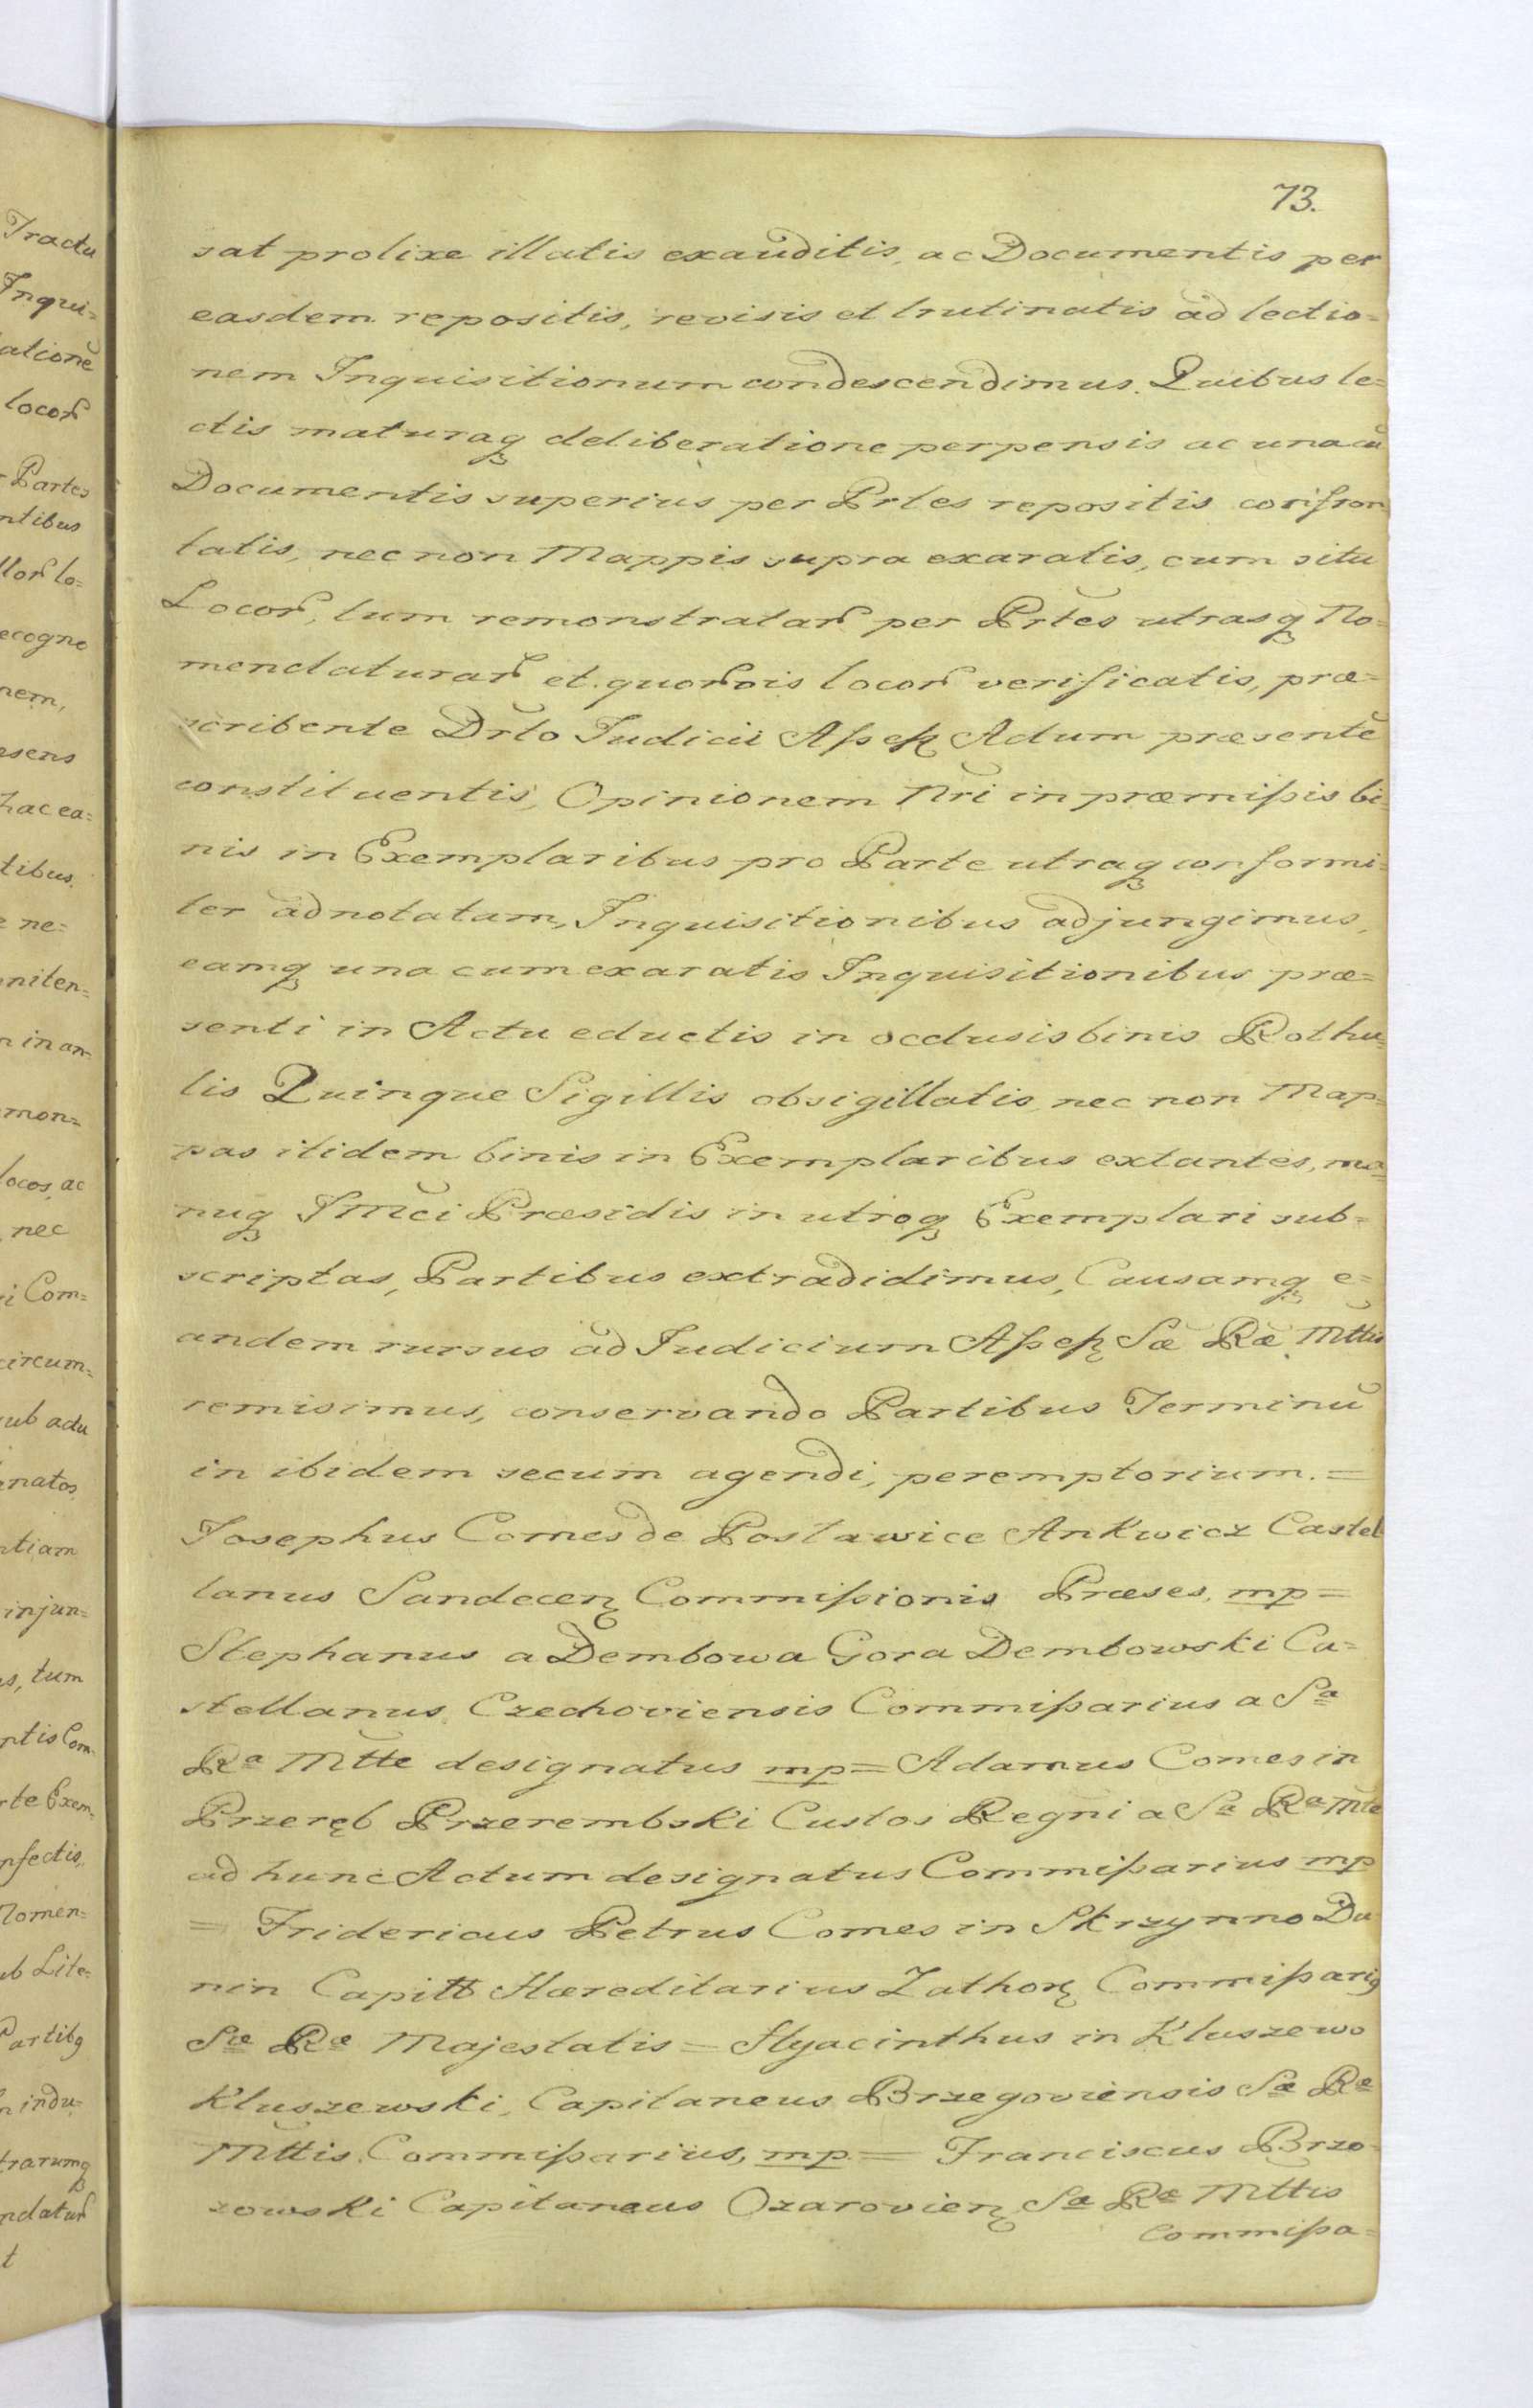 73.
sat prolixe illatis exauditis, ac Documentis per
easdem repositis, revisis et trutinatis ad lectio=
nem Inquisitionum condescendimus. Quibus le=
ctis maturaq deliberatione perpensis ac una cũ
Documentis superius per Prtes repositis confron
tatis, nec non Mappis supra exaratis, cum situ
Locoꝝ, tum remonstrataꝝ per Prtes utrasq No=
menclaturaꝝ et quoꝝvis locoꝝ verificatis, præ=
scribente Drto Judicii Aßeß Actum præsentẽ
constituentis, Opinionem Nri in præmißis bi=
nis in Exemplaribus pro Parte utraq conformi=
ter adnotatam, Inquisitionibus adjungimus,
eamq una cum exaratis Inquisitionibus præ=
senti in Actu eductis in occlusis binis Rothu=
lis Quinque Sigillis obsigillatis, nec non Map=
pas itidem binis in Exemplaribus extantes, ma=
nuq JMci Præsidis in utroq Exemplari sub=
scriptas, Partibus extradidimus, Causamq e=
andem rursus ad Judicium Aßeß Sæ Ræ Mttis
remisimus, conservando Partibus Terminũ
in ibidem secum agendi, peremptorium. =
Josephus Comes de Postawice Ankwicz Castel
lanus Sandecen Commißionis Præses, mp =
Stephanus a Dembowa Gora Dembowski Ca=
stellanus Czechoviensis Commißarius a Sa
Ra Mtte designatus mp = Adamus Comes in
Przeręb Przerembski Custos Regni a Sa Ra Mtte
ad hunc Actum designatus Commißarius mp
= Fridericus Petrus Comes in Skrzynno Du
nin Capitt Hæreditarius Zathor Commißariq
Sæ Ræ Majestatis = Hyacinthus in Kluszewo
Kluszewski, Capitaneus Brzegoviensis Sæ Ræ
Mttis Commißarius, mp = Franciscus Brzo=
zowski Capitaneus Ozarovien Sæ Ræ Mttis
Commißa=